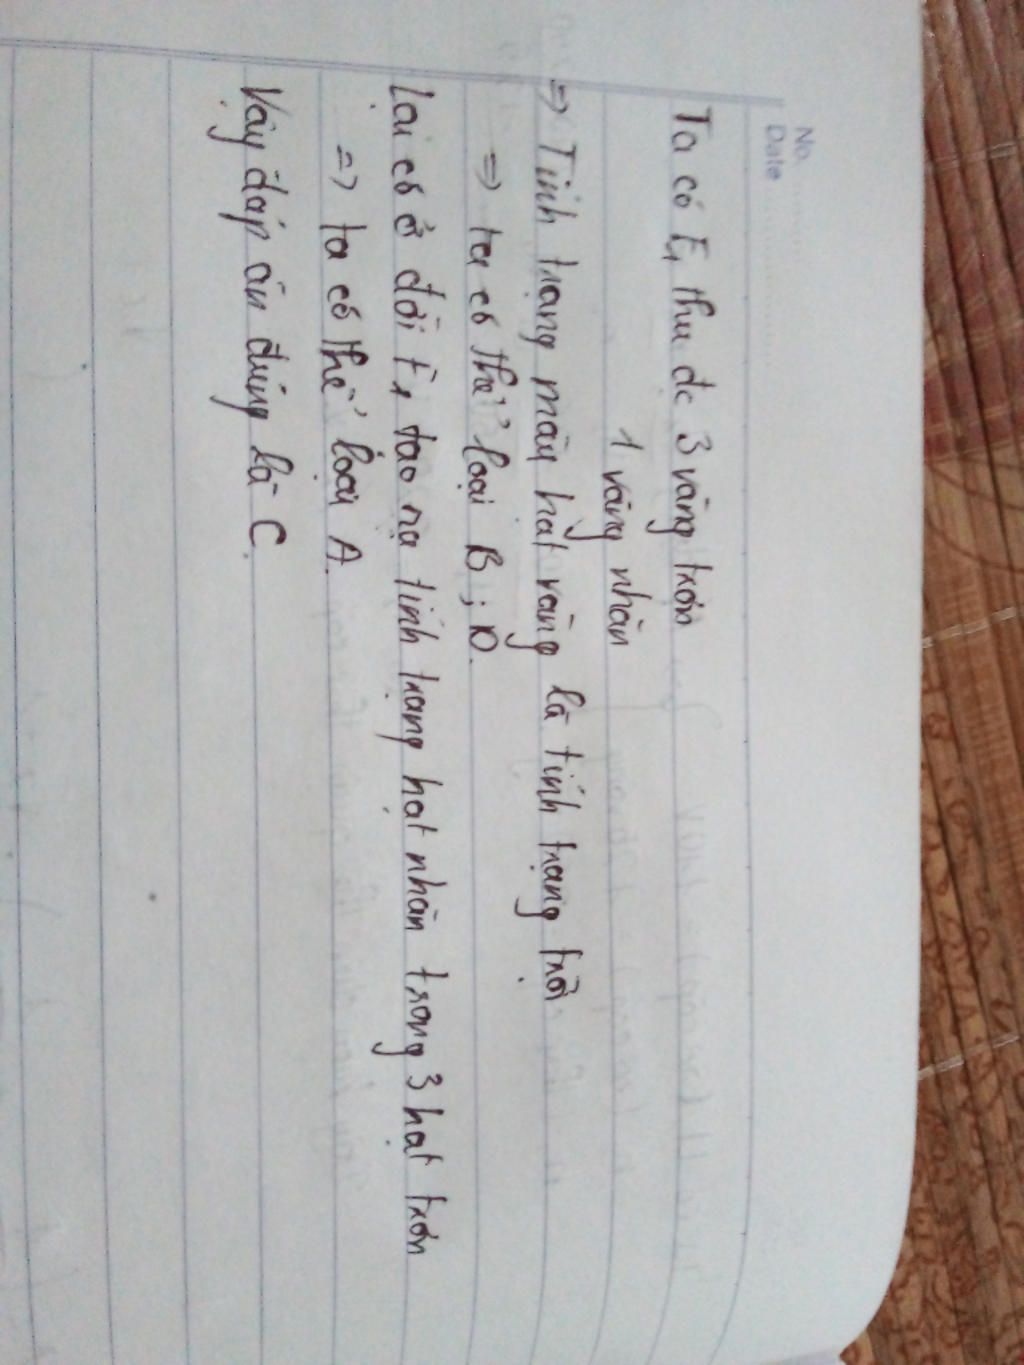 No.
Date
Ta có F1 thu đc 3 vàng trơn
1 vàng nhăn
=> Tính trạng màu hạt vàng là tính trạng trội
=> ta có thể loại B ; D.
Lại có ở đời F1 tạo ra tính trạng hạt nhăn trong 3 hạt trơn
=> ta có thể loại A.
Vậy đáp án đúng là C.